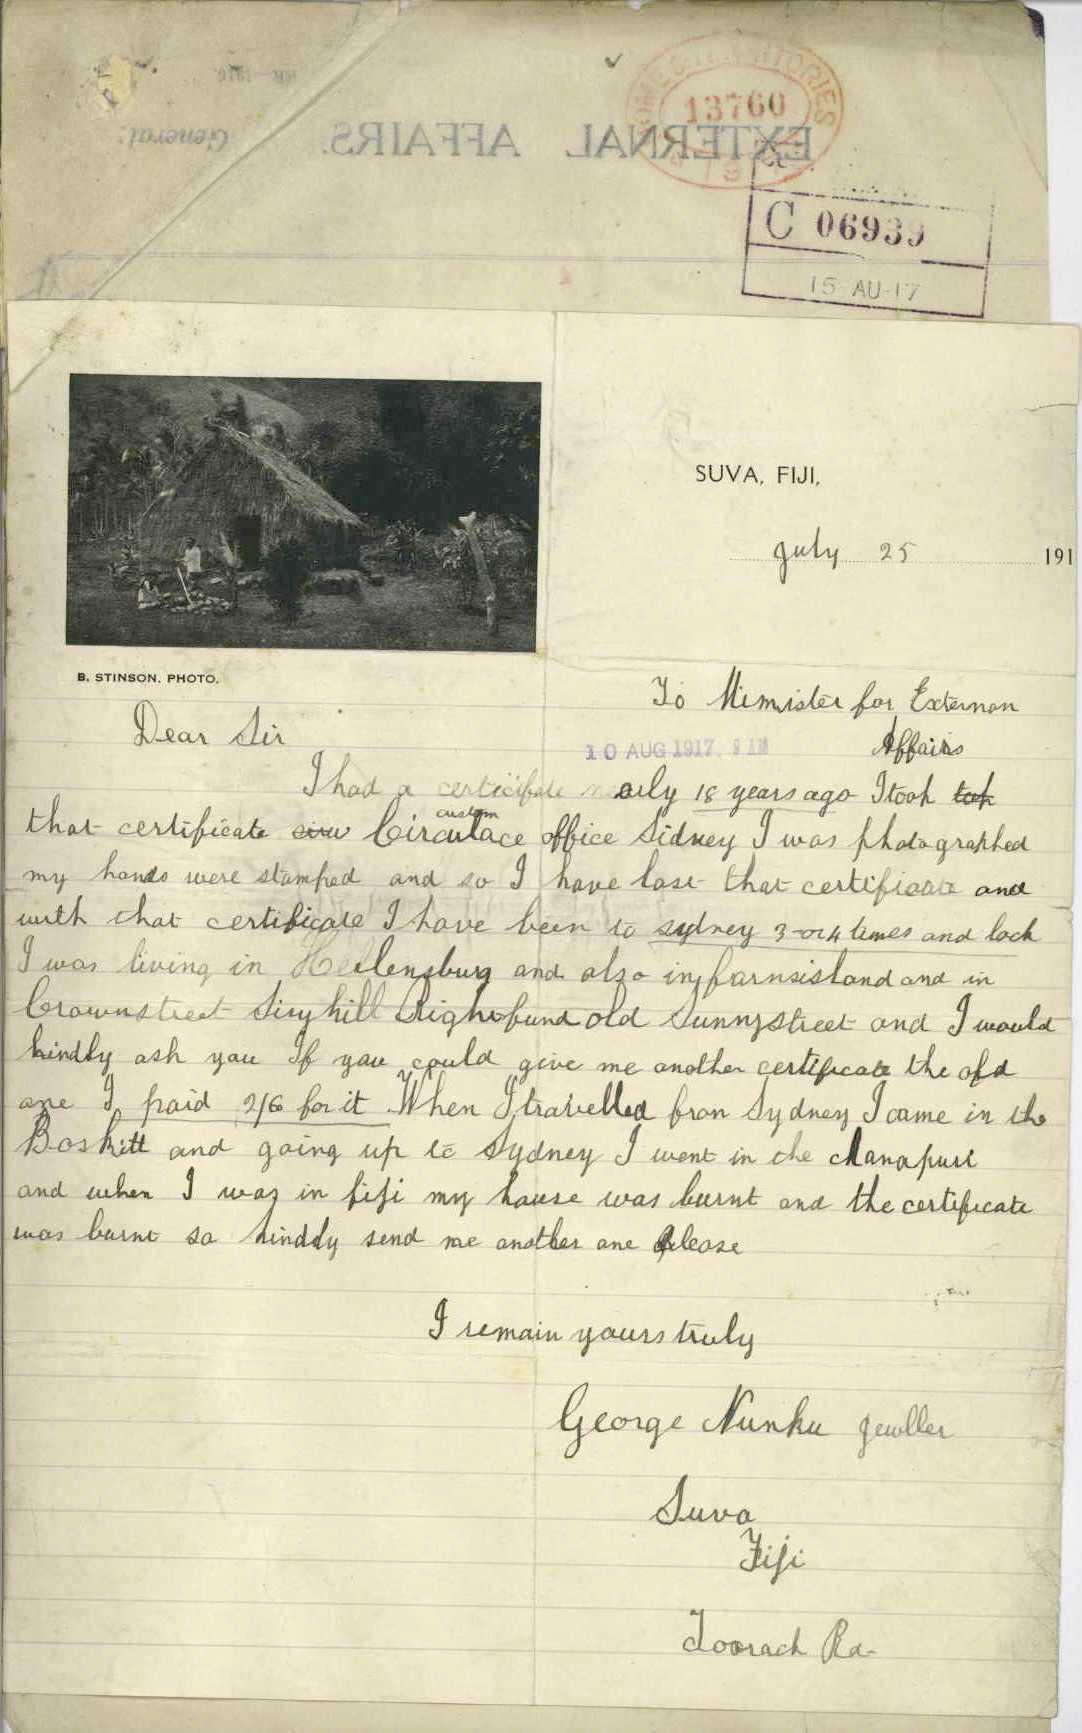 HOME & TERRITORIES
13760
EXTERNAL AFFAIRS.
General.
C 06939
15 AU 17
SUVA, FIJI,
July 25 191
B. STINSON. PHOTO.
To Mimister for Externan
Affairs
Dear Sir
10 AUG 1917
I had a certicifate 18 years ago I took tok
that certificate Circulace custom office Sidney I was photographed
my hands were stamped and so I have lost that certificate and
with that certificate I have been to sydney 3 or 4 times and back
I was living in Hellensburg and also in farnsisland and in
Crownstreet Siryhill Righfund old Sunnystreet and I would
kindly ask you If you could give me another certificate the old
one I paid 2/6 for it When I travelled from Sydney I came in the
Boskitt and going up to Sydney I went in the Manapuri
and when I was in fiji my house was burnt and the certificate
was burnt so kinddy send me another one please
I remain yours truly
George Nunku Jewller
Suva
Fiji
Toorach Rd